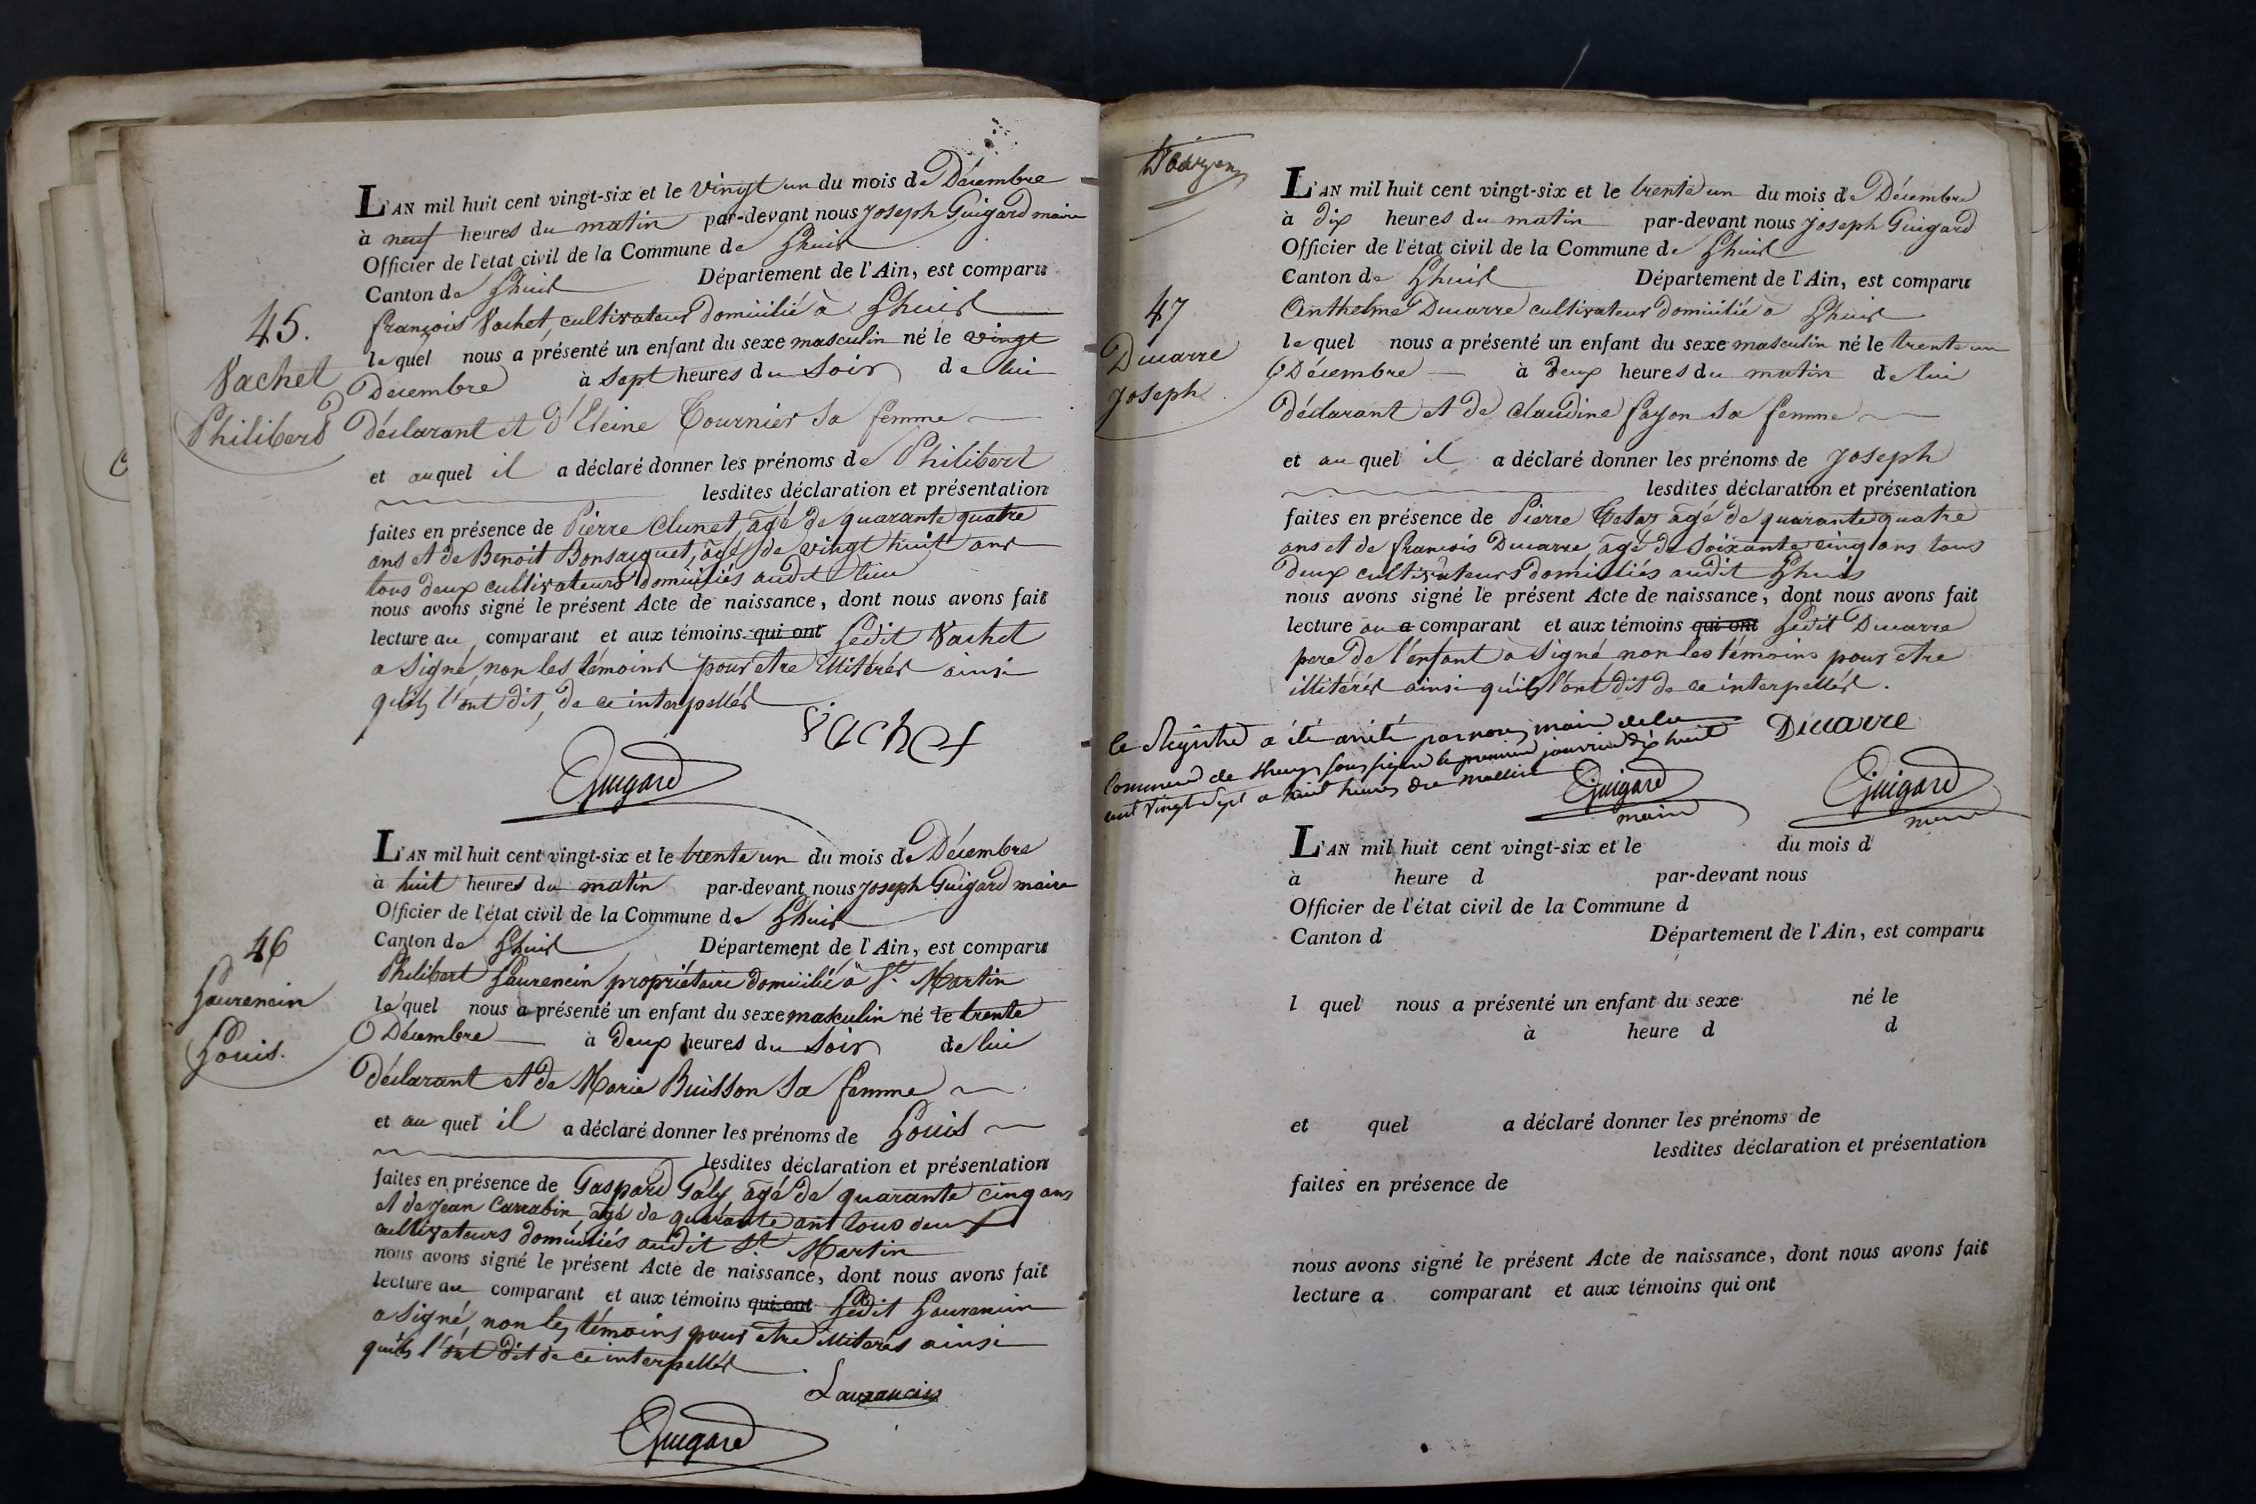 L'AN mil huit cent vingt-six et le vingt un du mois de Décembre
à neuf heures du matin par-devant nous Joseph Guigard maire
Officier de l'état civil de la Commune de Lhuis
Canton de Lhuis Département de l'Ain, est comparu
45.
françois Vachet, cultivateur domicilié à Lhuis
lequel nous a présenté un enfant du sexe masculin né le vingt
Vachet
Philibert
Decembre à sept heures du soir de lui
Déclarant et d'Eleine Tournier sa femme
et auquel il a déclaré donner les prénoms de Philibert
lesdites déclaration et présentation
faites en présence de Pierre Clunet, âgé de quarante quatre
ans et de Benoit Bonsacquet, âgé de vingt huit ans
tous deux cultivateurs domiciliés audit lieu
nous avons signé le présent Acte de naissance, dont nous avons fait
lecture au comparant et aux témoins qui ont Ledit Vachet
a signé, non les témoins pour etre illitérés ainsi
qu'ils l'ont dit, de ce interpellés
Vachet
Guigard
L'AN mil huit cent vingt-six et le trente un du mois de Décembre
à huit heures du matin par-devant nous Joseph Guigard maire
Officier de l'état civil de la Commune de Lhuis
46
Canton de Lhuis Département de l'Ain, est comparu
Philibert Laurencin propriétaire domicilié à St. Martin
Laurencin
Louis.
lequel nous a présenté un enfant du sexe masculin né le trente
Décembre à deux heures du soir de lui
Déclarant et de Marie Buisson sa femme
et au quel il a déclaré donner les prénoms de Louis
lesdites déclaration et présentation
faites en présence de Gaspard Galy, âgé de quarante cinq ans
et de Jean Carrabin, âgé de quarante ans tous deux
cultivateurs domiciliés audit St. Martin
nous avons signé le présent Acte de naissance, dont nous avons fait
lecture au comparant et aux témoins qui ont Ledit Laurencin
a signé, non les témoins pour etre illiterés ainsi
qu'ils l'ont dit de ce interpellés
Laurancin
Guigard
L'AN mil huit cent vingt-six et le trente un du mois de Décembre
à dix heures du matin par-devant nous Joseph Guigard
Officier de l'état civil de la Commune de Lhuis
Canton de Lhuis Département de l'Ain, est comparu
47
Anthelme Ducarre cultivateur domicilié à Lhuis
Ducarre
Joseph
lequel nous a présenté un enfant du sexe masculin né le trente un
Décembre à deux heures du matin de lui
Déclarant et de Claudine fayon sa femme
et au quel il a déclaré donner les prénoms de Joseph
lesdites déclaration et présentation
faites en présence de Pierre Tetaz âgé de quarante quatre
ans et de françois Ducarre, âgé de soixante cinq ans tous
deux cultivateurs domiciliés audit Lhuis
nous avons signé le présent Acte de naissance, dont nous avons fait
lecture au a comparant et aux témoins qui ont Ledit Ducarre
pere de l'enfant a signé, non les témoins pour etre
illitérés ainsi qu'ils l'ont dit de ce interpellés.
Ducarre
le Registre a été arrété par nous maire de la
Commune de Lhuys soussigné le premier janvier dix huit
cent vingt sept a huit heures du matin
Guigard
maire
Guigard
maire
L'AN mil huit cent vingt-six et le du mois d
à heure d par-devant nous
Officier de l'état civil de la Commune d
Canton d Département de l'Ain, est comparu
l quel nous a présenté un enfant du sexe né le
à heure d d
et quel a déclaré donner les prénoms de
lesdites déclaration et présentation
faites en présence de
nous avons signé le présent Acte de naissance, dont nous avons fait
lecture a comparant et aux témoins qui ont